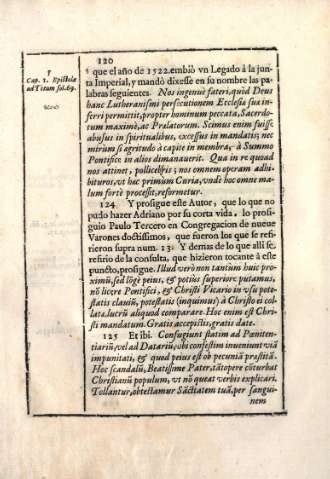 120
y
Cap. 1. Epistolæ
ad Titum fol. 69.
que el año de 1522. embiò vn Legado à la jun
ta Imperial, y mandò dixesse en su nombre las pa
labras seguientes. Nos ingenuè fateri, quòd Deus
hanc Lutheranismi persecutionem Ecclesiæ suæ in
ferri permittit, propter hominum peccata, Sacerdo-
tum maximè, ac Prælatorum. Scimus enim fuisse
abusus in spiritualibus, excessus in mandatis; nec
mirum si ægritudo à capite in membra, à Summo
Pontifice in alios dimanauerit. Qua in re quoad
nos attinet, polliceris; nos omnem operam adhi-
bituros, vt hæc primùm Curia, vnde hoc omne ma-
lum fortè processit, reformetur.
124. Y prosigue este Autor, que lo que no
pudo hazer Adriano por su corta vida, lo prosi-
guiò Paulo Tercero en Congregacion de nueue
Varones doctissimos, que fueron los que se refi-
rieron supra num. 13. Y demas de lo que alli se
refirio de la consulta, que hizieron tocante à este
puncto, prosigue. Illud verò non tantùm huic proxi
mũ, sed lõgè peius, & potiùs superiorẽ putamus,
nõ licere Pontifici, & Christi Vicario in vsu pote-
statis clauiũ, potestatis (inquimus) à Christo ei col
latæ, lucrũ aliquod comparare. Hoc enim est Chri-
sti mandatum. Gratis accepistis, gratis date.
125 Et ibi. Confugiunt statim ad Pœniten-
tiariũ, vel ad Datariũ, vbi confestim inveniunt viã
impunitati, & quod peius est ob pecuniã præstitã.
Hoc scandalũ, Beatissime Pater, tãtopere cõturbat
Christianũ populum, vt nõ queat verbis explicari.
Tollantur, obtestamur Sãctitatem tuã, per sangui-
nem